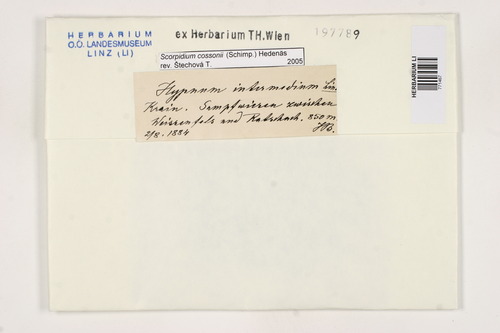 HERBARIUM
O.Ö. LANDESMUSEUM
LINZ (LI)
ex Herbarium TH.Wien
197789
Scorpidium cossonii (Schimp.) Hedenäs
rev. Štechová T. 2005
Hypnum intermedium Lin.
Krain. Sumpfwiesen zwischen
Weissenfels und Ratschach. 850 m
2/8. 1884
HERBARIUM LI